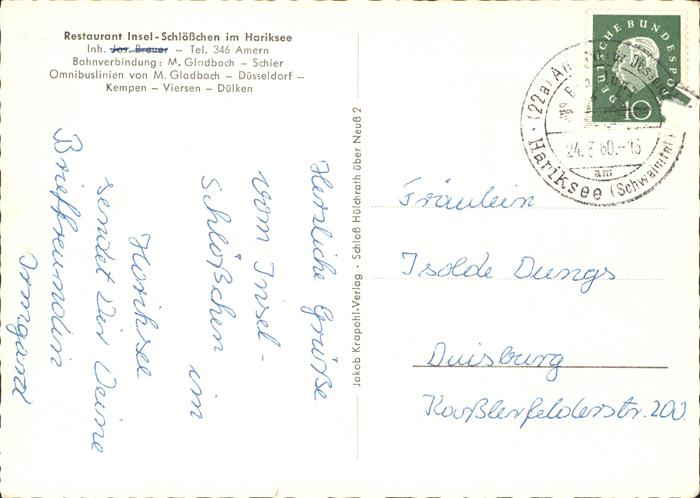 Restaurant Insel-Schlößchen im Hariksee
Inh. Jos. Brauer – Tel. 346 Amern
Bahnverbindung: M. Gladbach – Schier
Omnibuslinien von M. Gladbach – Düsseldorf –
Kempen – Viersen – Dülken
Herzliche Grüße
vom Insel-
schlößchen im
Hariksee
sendet Dir Deine
Brieffreundin
Irmgard
Jakob Krapohl-Verlag · Schloß Hülchrath über Neuß 2
DEUTSCHE BUNDESPOST
10
(22a)
24. 60.-15
am
Hariksee (Schwalmtal)
Fräulein
Isolde Dungs
Duisburg
Kaßlerfelderstr. 200.